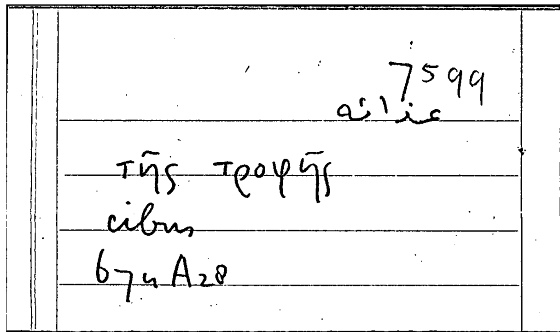 7599
غذائه
τῆς τροφῆς
cibus
674 A28